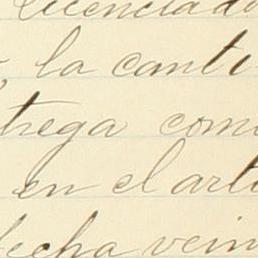 licenciado
, la canti
trega como
en el artí
fecha vein